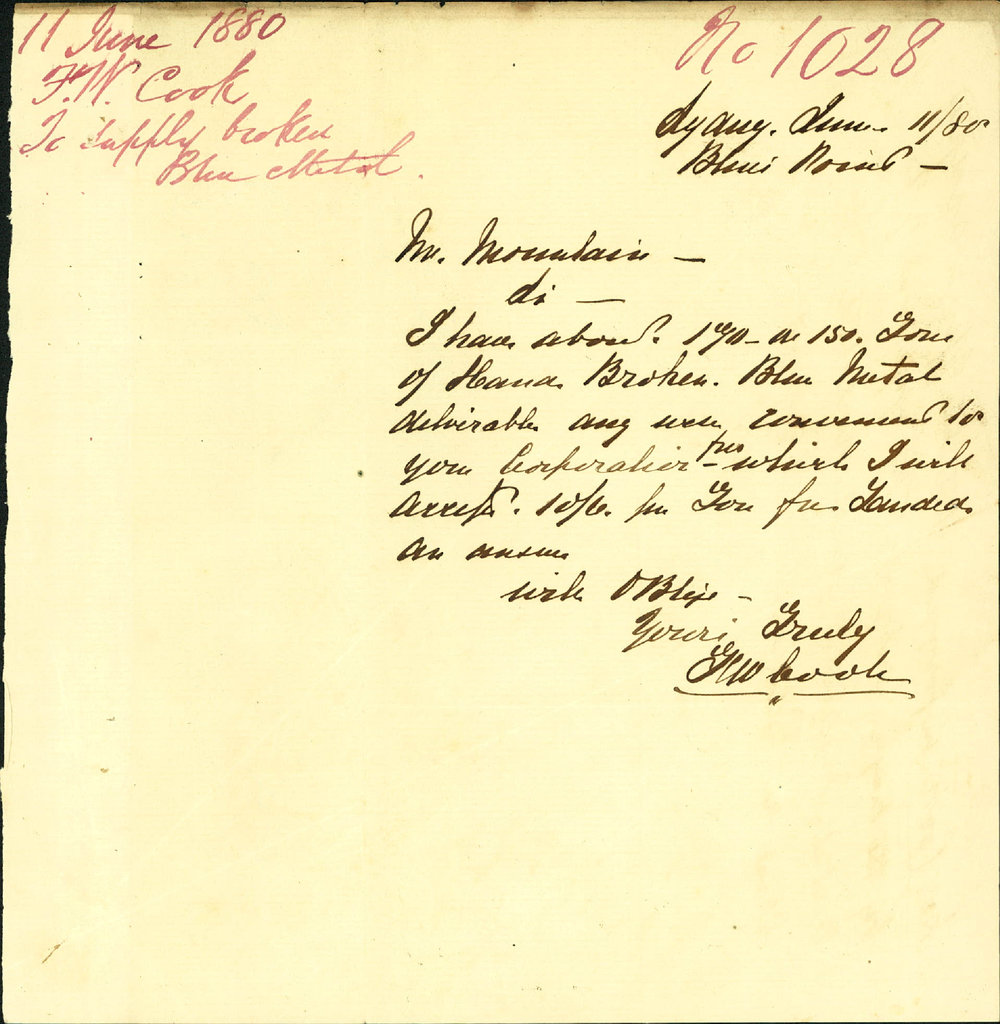 11 June 1880
F.W. Cook
To supply broken
Blue Metal.
No 1028
Sydney. June 11/80
Blues Point —
Mr. Mountain —
Sir —
I have about. or 150. Tons
of Hand Broken. Blue Metal
any convenient to
your Corporation which I will
accept. 10/6. per Ton Landed
an answer
will OBlige —
Yours Truly
FW Cook